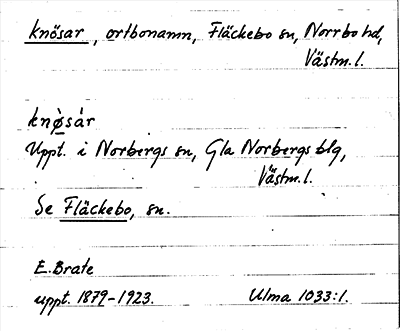 knösar, ortbonamn, Fläckebo sn, Norrbo hd,
Västm.l.
knø̀sàr
Uppt. i Norbergs sn, Gla Norbergs blg,
Västm.l.
Se Fläckebo, sn.
E. Brate
uppt. 1879-1923. Ulma 1033:1.